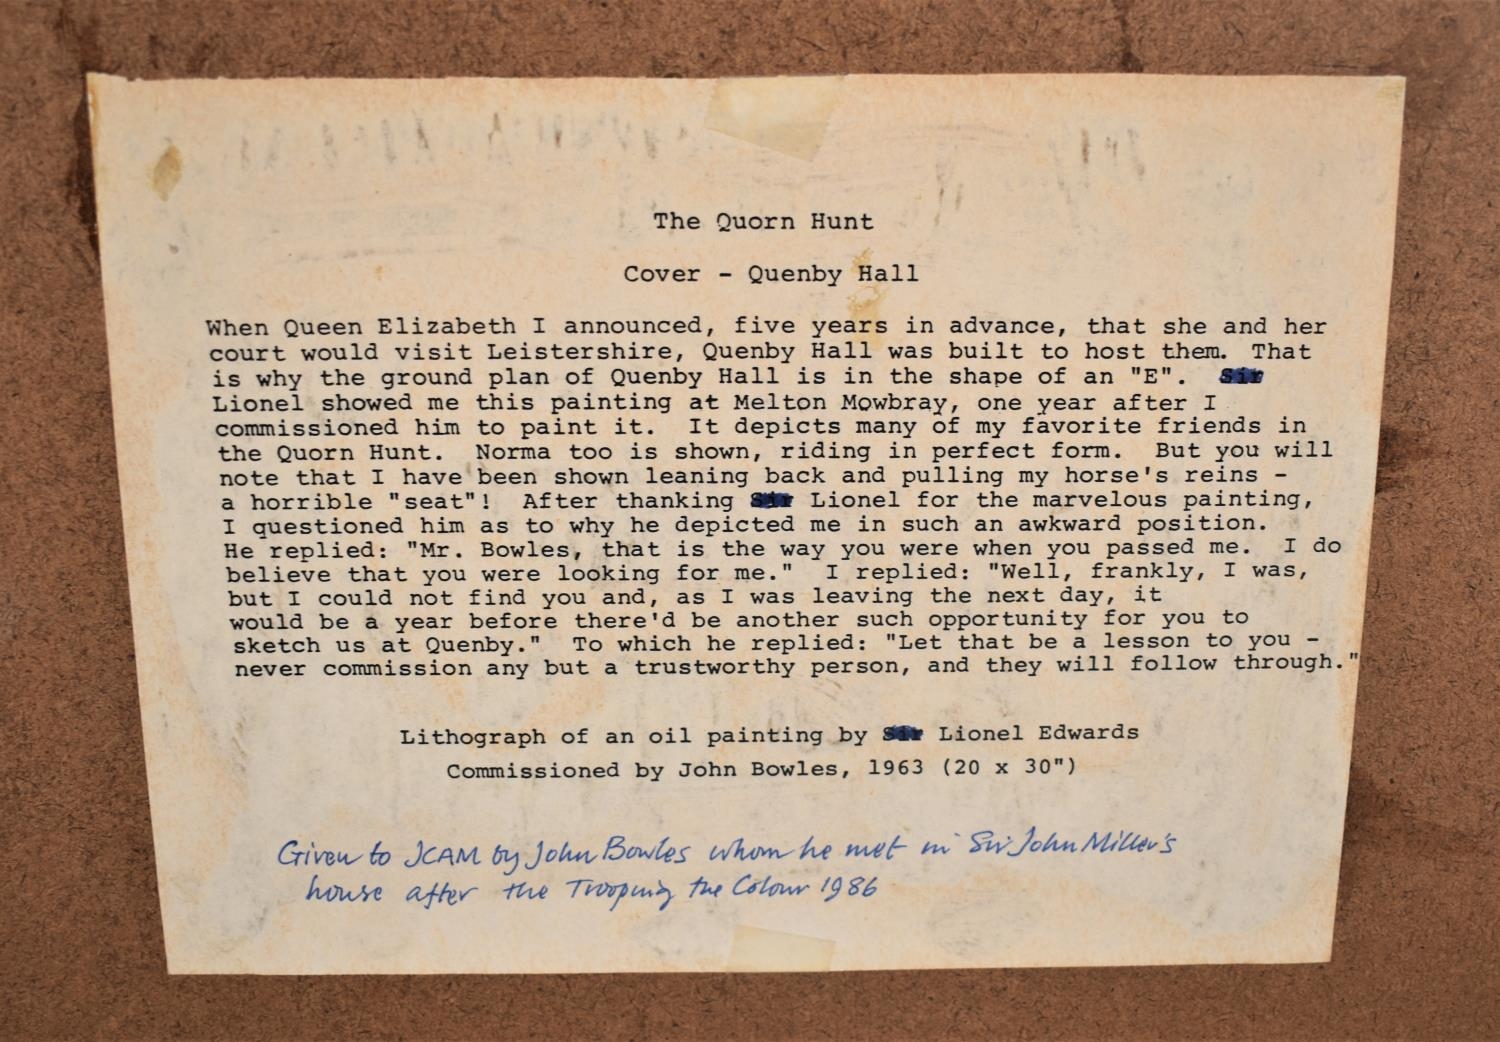 The Quorn Hunt
Cover - Quenby Hall
When Queen Elizabeth I announced, five years in advance, that she and her
court would visit Leistershire, Quenby Hall was built to host them. That
is why the ground plan of Quenby Hall is in the shape of an "E". Sir
Lionel showed me this painting at Melton Mowbray, one year after I
commissioned him to paint it. It depicts many of my favorite friends in
the Quorn Hunt. Norma too is shown, riding in perfect form. But you will
note that I have been shown leaning back and pulling my horse's reins -
a horrible "seat"! After thanking Sir Lionel for the marvelous painting,
I questioned him as to why he depicted me in such an awkward position.
He replied: "Mr. Bowles, that is the way you were when you passed me. I do
believe that you were looking for me." I replied: "Well, frankly, I was,
but I could not find you and, as I was leaving the next day, it
would be a year before there'd be another such opportunity for you to
sketch us at Quenby." To which he replied: "Let that be a lesson to you -
never commission any but a trustworthy person, and they will follow through."
Lithograph of an oil painting by Sir Lionel Edwards
Commissioned by John Bowles, 1963 (20 x 30")
Given to JCAM by John Bowles whom he met in Sir John Miller's
house after the Trooping the Colour 1986